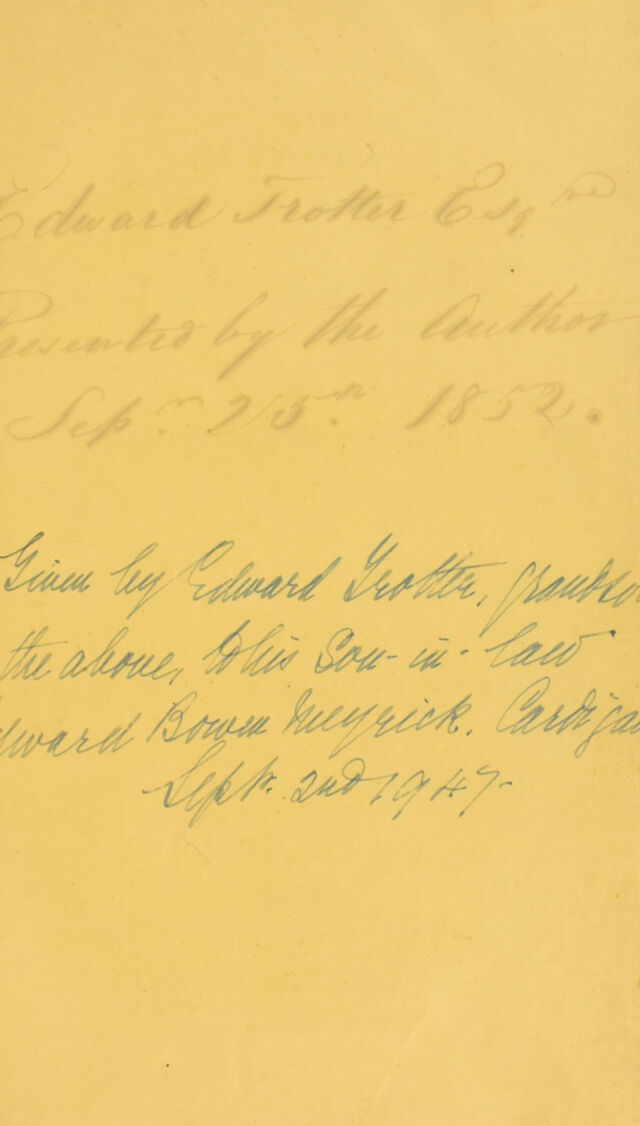 Edward Trotter Esqre
Presented by the Author
Sepr. 25th 1852.
Given by Edward Trotter, grandso
the above, to his Son-in-law
dward Bowen Meyrick. Cardiga
Sept. 2nd 1947-